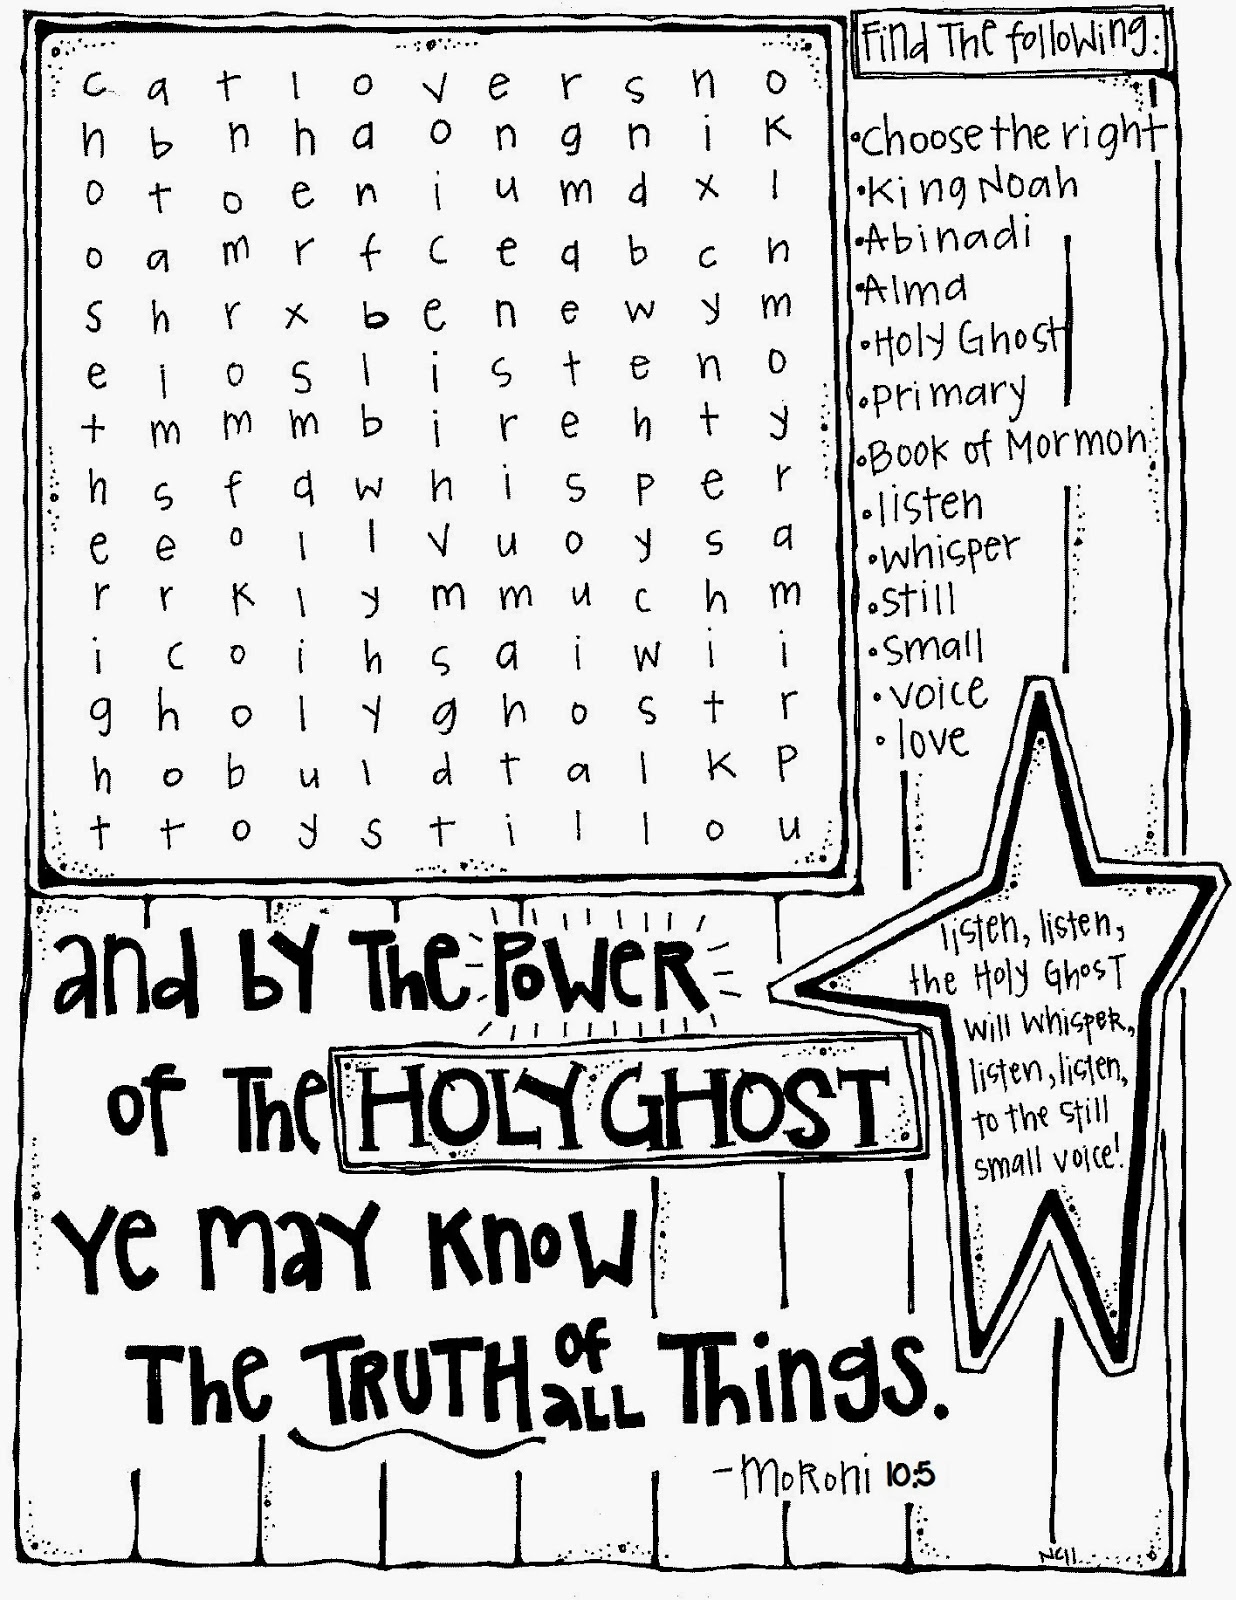 c a t l o v e r s n o
h b n h a o n g n i k
o t o e n i u m d x l
o a m r f c e a b c n
s h r x b e n e w y m
e i o s l i s t e n o
t m m m b i r e h t y
h s f a w h i s p e r
e e o l l v u o y s a
r r k l y m m u c h m
i c o i h s a i w i i
g h o l y g h o s t r
h o b u l d t a l k p
t t o y s t i l l o u
Find The following:
• choose the right
• King Noah
• Abinadi
• Alma
• Holy Ghost
• primary
• Book of Mormon
• listen
• whisper
• still
• small
• voice
• love
and by The PoWeR
of The HOLY GHOST
Ye may Know
The TRUTH of all Things.
- MoRoni 10:5
listen, listen,
the Holy Ghost
will whisper,
listen, listen,
to the still
small voice!